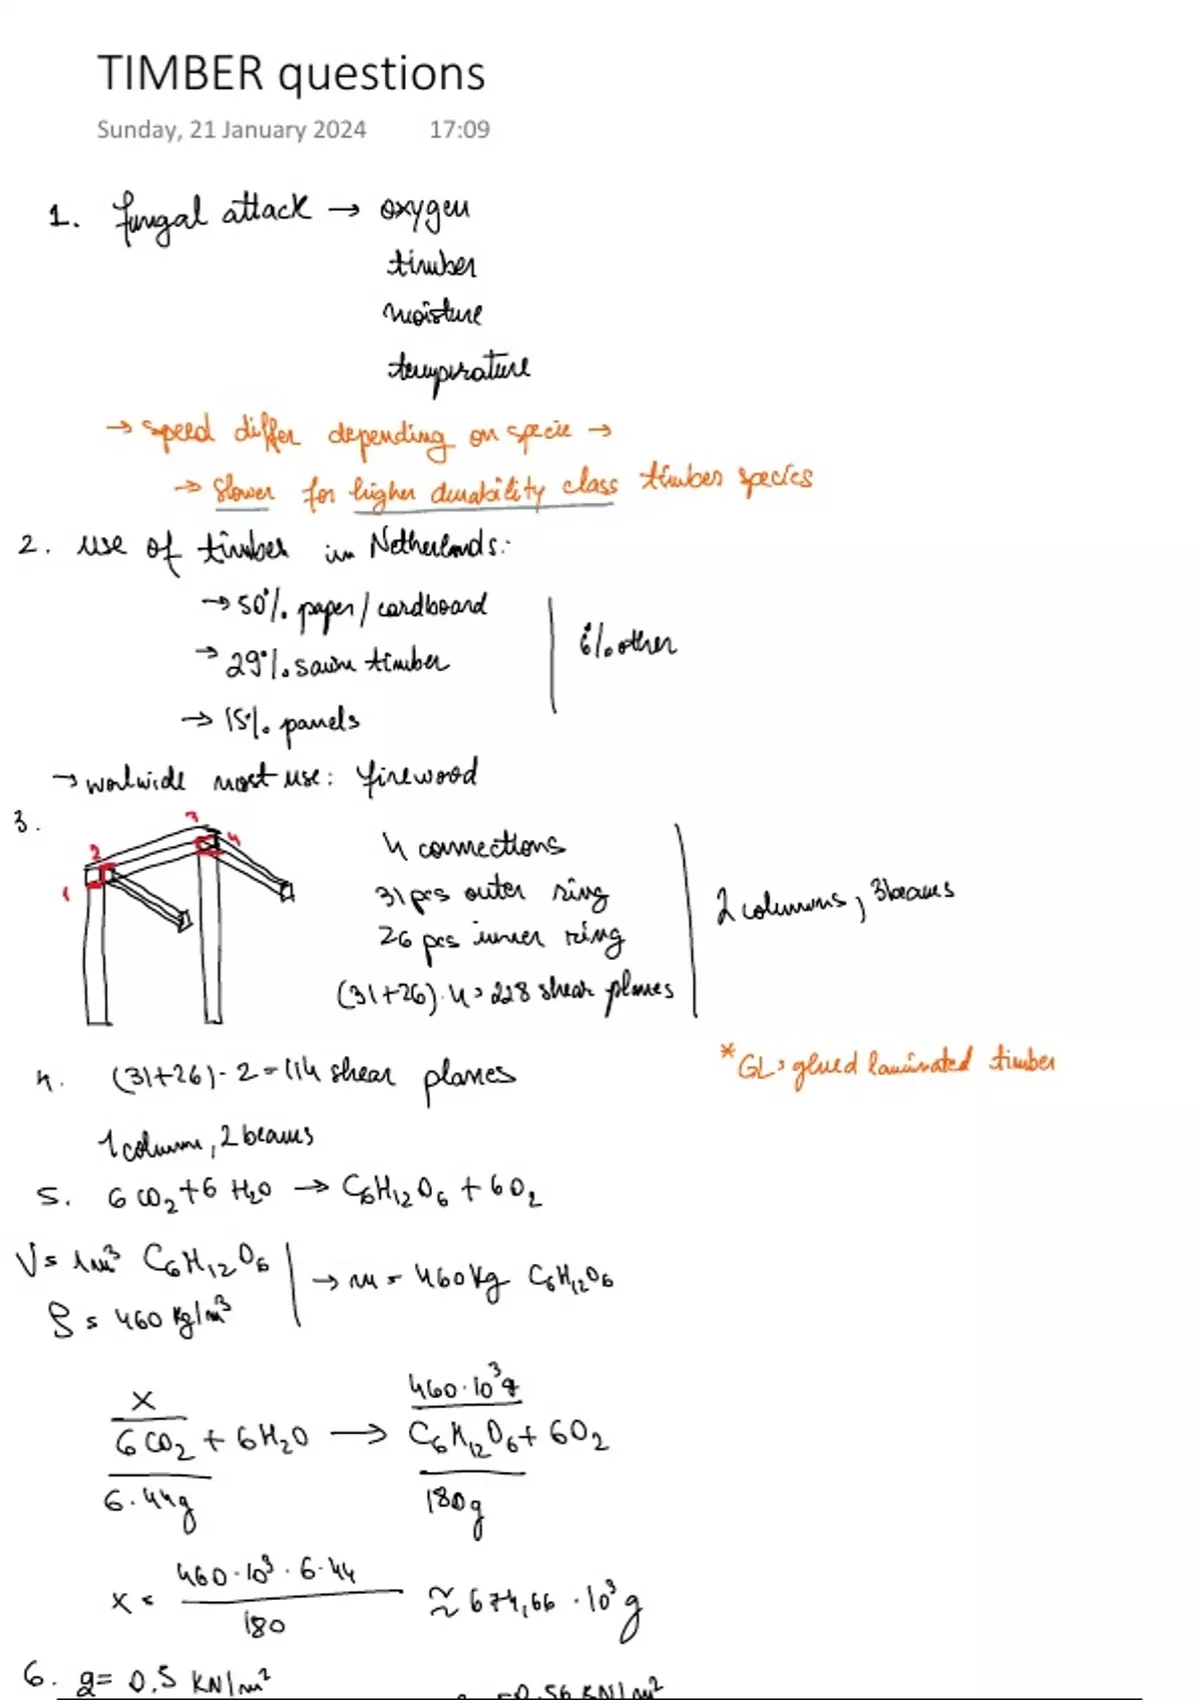 TIMBER questions
Sunday, 21 January 2024 17:09
1. fungal attack → oxygen
timber
moisture
temperature
→ speed differ depending on specie →
→ slower for higher durability class timber species
2. use of timber in Netherlands:
→ 50% paper/cardboard
6% other
→ 29% sawn timber
→ 15% panels
→ worlwide most use: firewood
3.
1 2 3 4
4 connections
31 pcs outer ring
26 pcs inner ring
(31+26)·4 = 228 shear planes
2 columns, 3 beams
4. (31+26)·2 = 114 shear planes
* GL = glued laminated timber
1 column, 2 beams
5. 6CO₂ + 6H₂O → C₆H₁₂O₆ + 6O₂
V = 1m³ C₆H₁₂O₆
→ m = 460kg C₆H₁₂O₆
ρ = 460 kg/m³
x 460·10³g
6CO₂ + 6H₂O → C₆H₁₂O₆ + 6O₂
6·44g 180g
460·10³·6·44
x = ≈ 674,66·10³g
180
6. g = 0.5 KN/m² =0.56 KN/m²